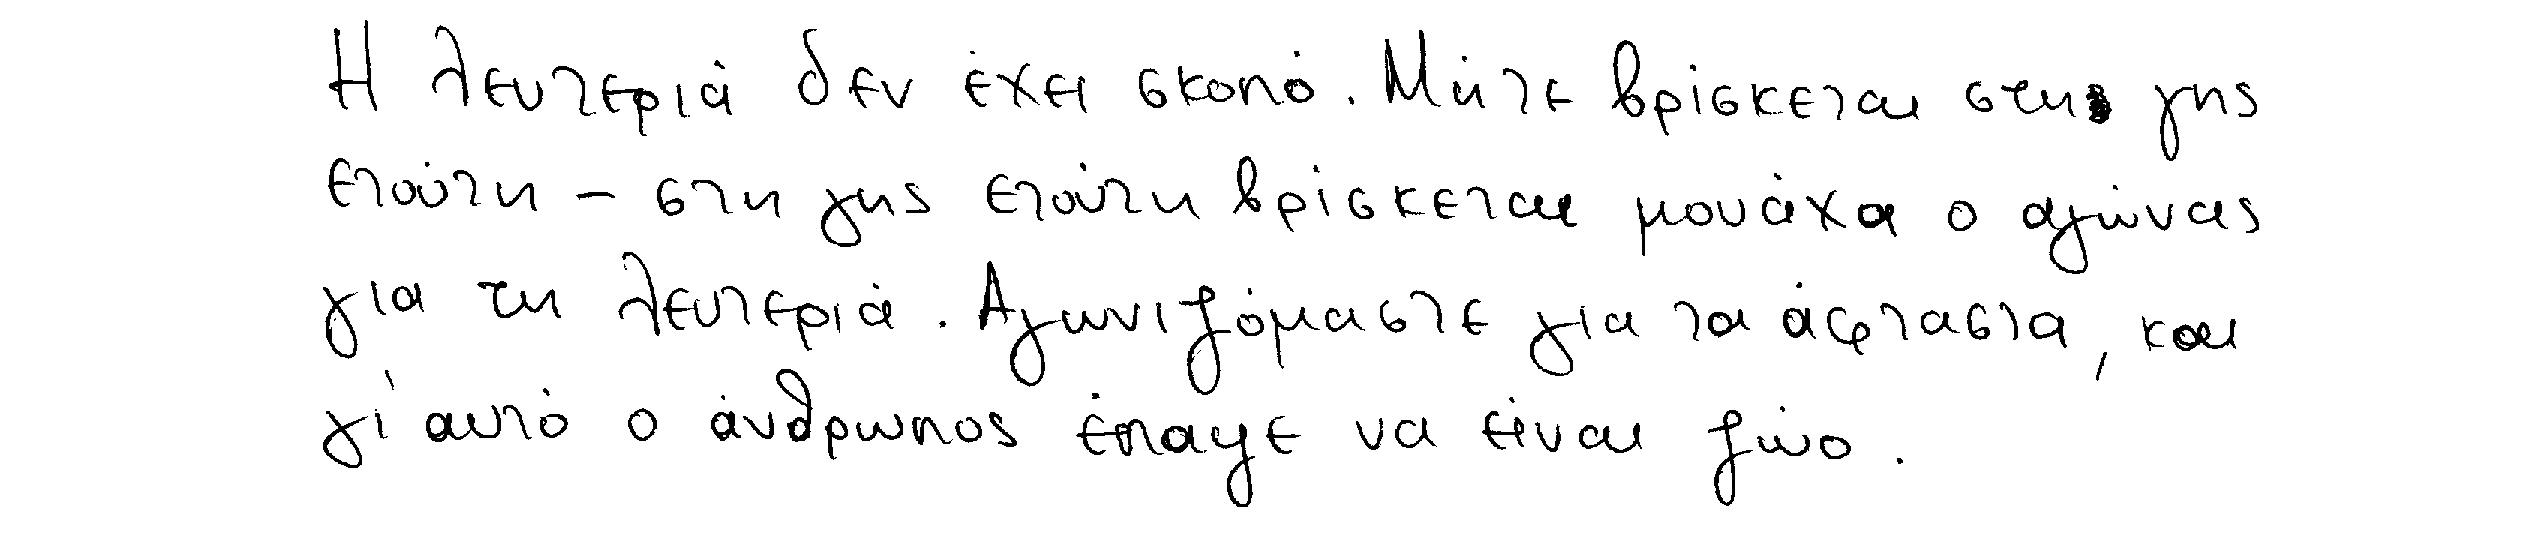 Η λευτεριά δεν έχει σκοπό. Μήτε βρίσκεται στη γης
ετούτη – στη γης ετούτη βρίσκεται μονάχα ο αγώνας
για τη λευτεριά. Αγωνιζόμαστε για τα άφταστα, και
γι' αυτό ο άνθρωπος έπαψε να είναι ζώο.